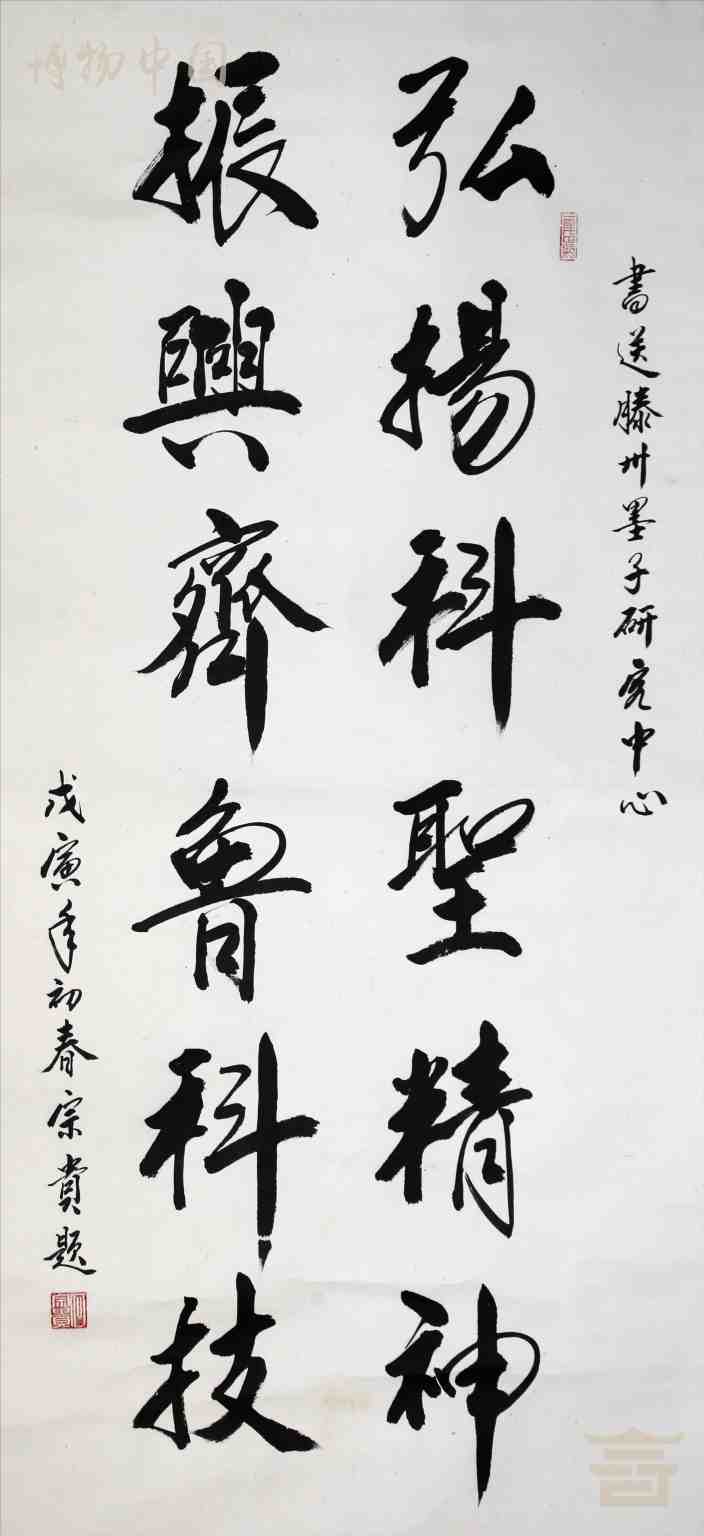 書送滕州墨子研究中心
弘揚科聖精神
振興齊魯科技
戊寅年初春宗賁題
博物中国